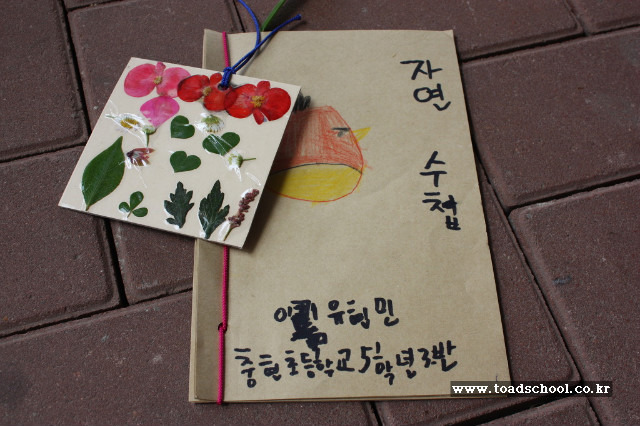 자연
수첩
충현초등학교 5학년 3반
www.toadschool.co.kr